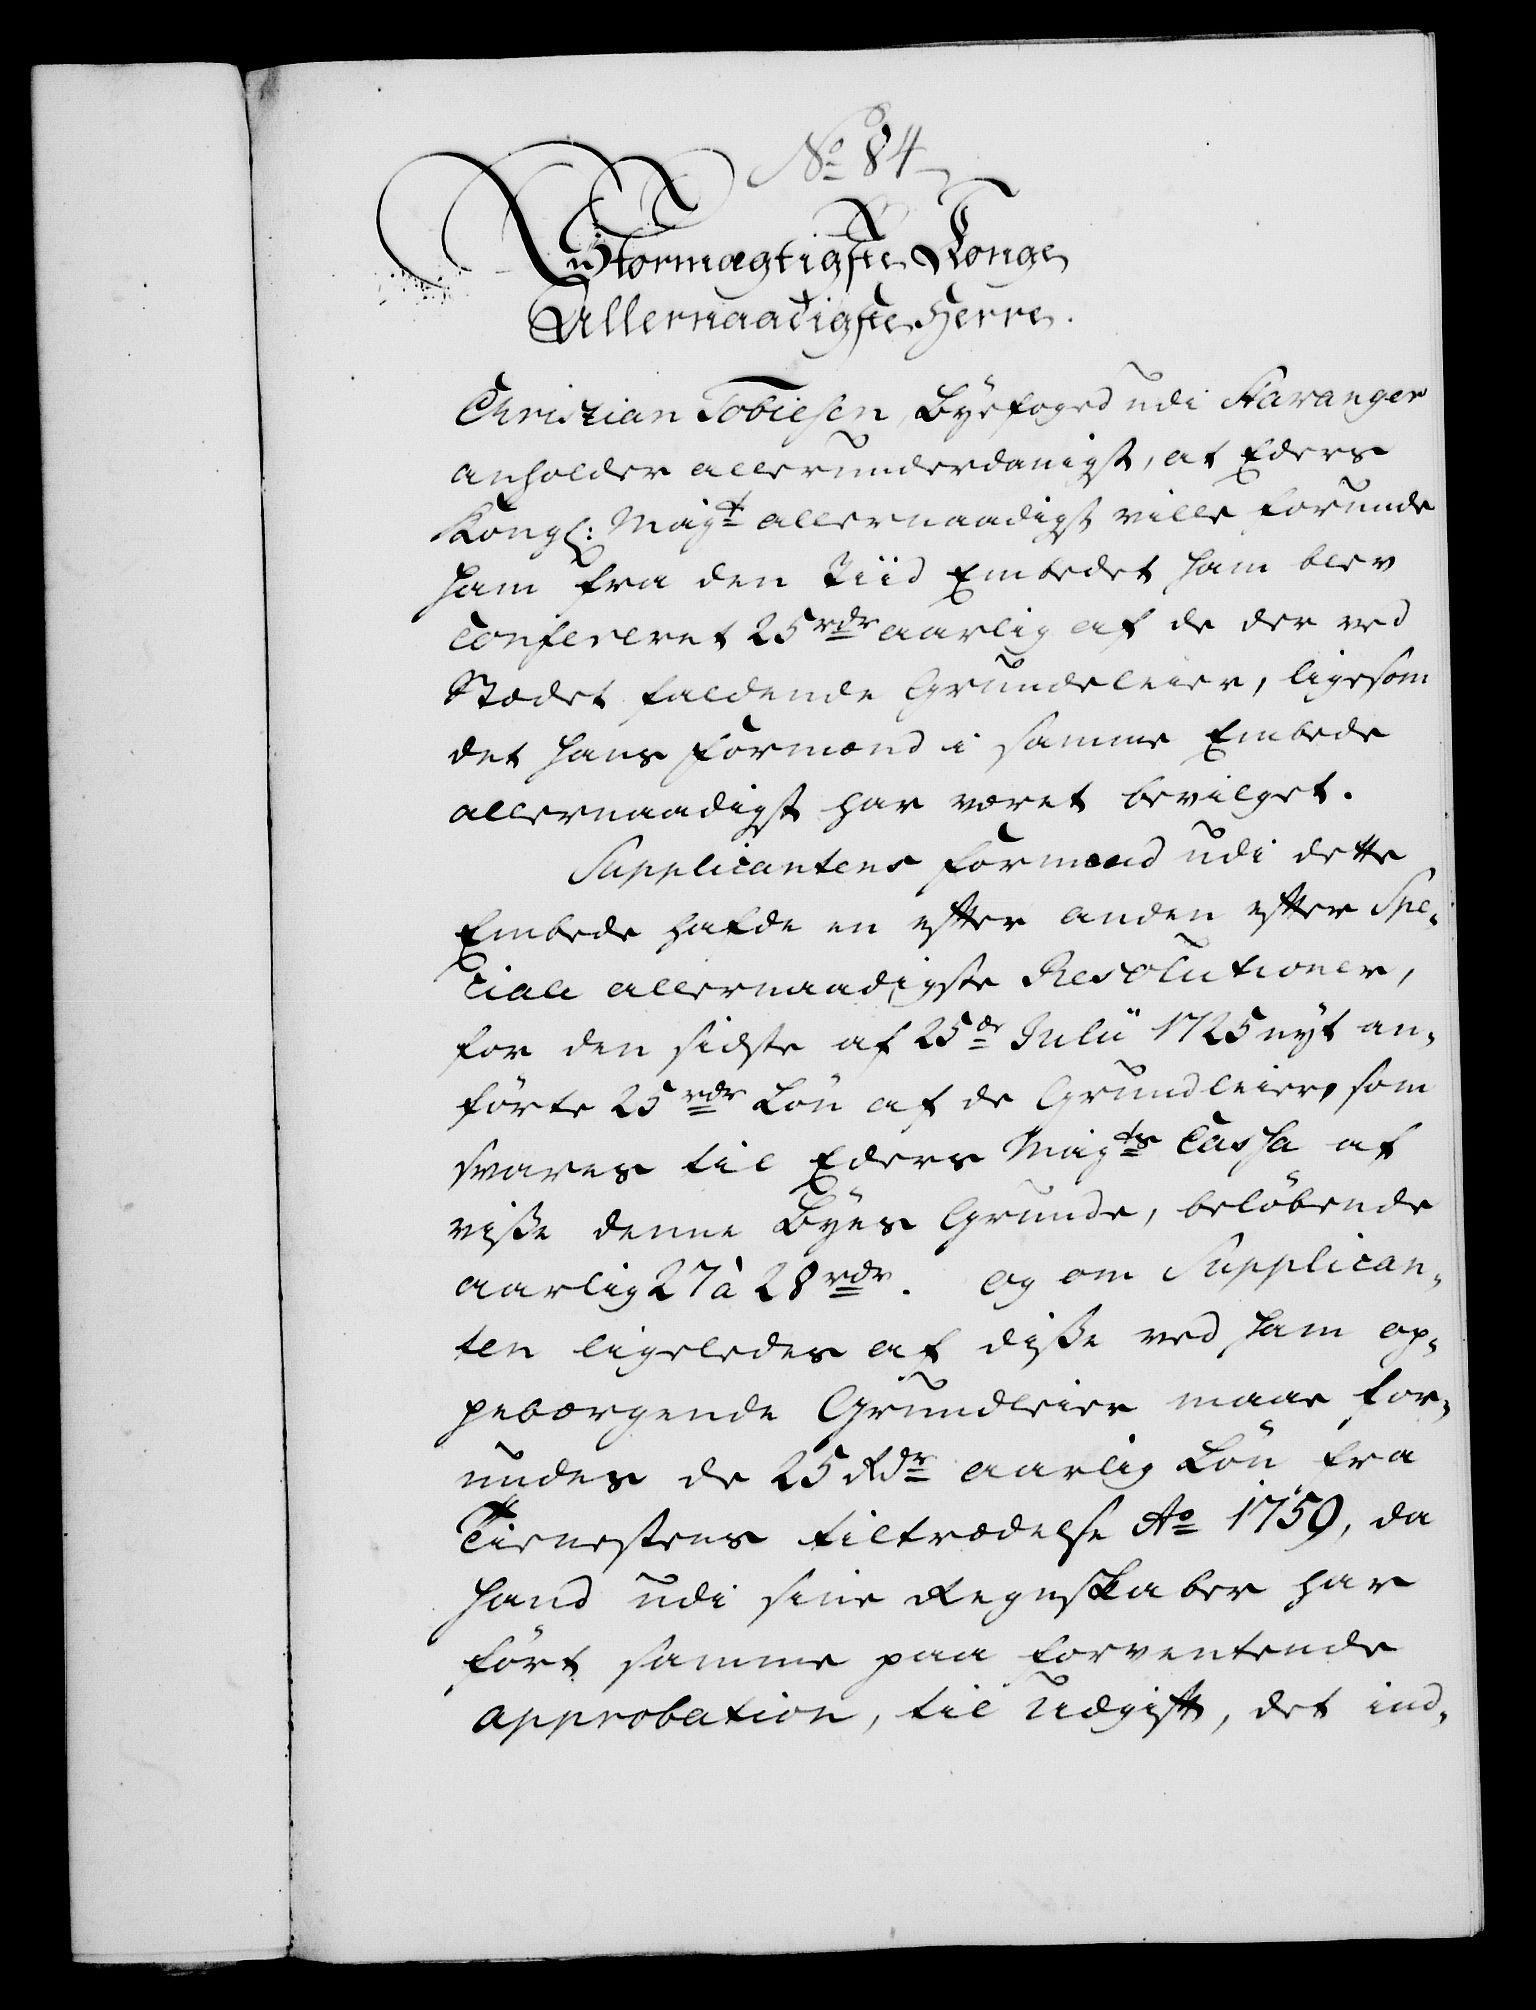 No 84
Stormægtigste Konge
Allernaadigste Herre.
Christian Tobiesen, Byefoged udi Stavanger
anholder allerunderdanigst, at Eders
Kongl: Maÿt allernaadigst ville forunde
ham fra den Tiid Embedet ham blev
Confereret 25 rdr aarlig af de der ved
Stædet faldende Grundeleier, ligesom
det hans Formænd i samme Embede
allernaadigst har været bevilget.
Supplicantens Formænd udi dette
Embede hafde en efter anden efter Spe-
ciale allernaadigste Resolutioner,
for den sidste af 25de Julii 1725 nyt an-
førte 25 rdr Løn af de Grundleier, som
svares til Eders Maÿts Cassa af
visse denne Byes Grunde, beløbende
aarlig 27 à 28 rdr. og om Supplican-
ten ligeledes af disse ved ham op-
pebærgende Grundleier maae for-
undes de 25 Rdr aarlig Løn fra
Tienestens tiltrædelse Ao 1759, da
hand udi sine Regnskaber har
ført samme paa forventende
approbation, til Udgift, det ind-